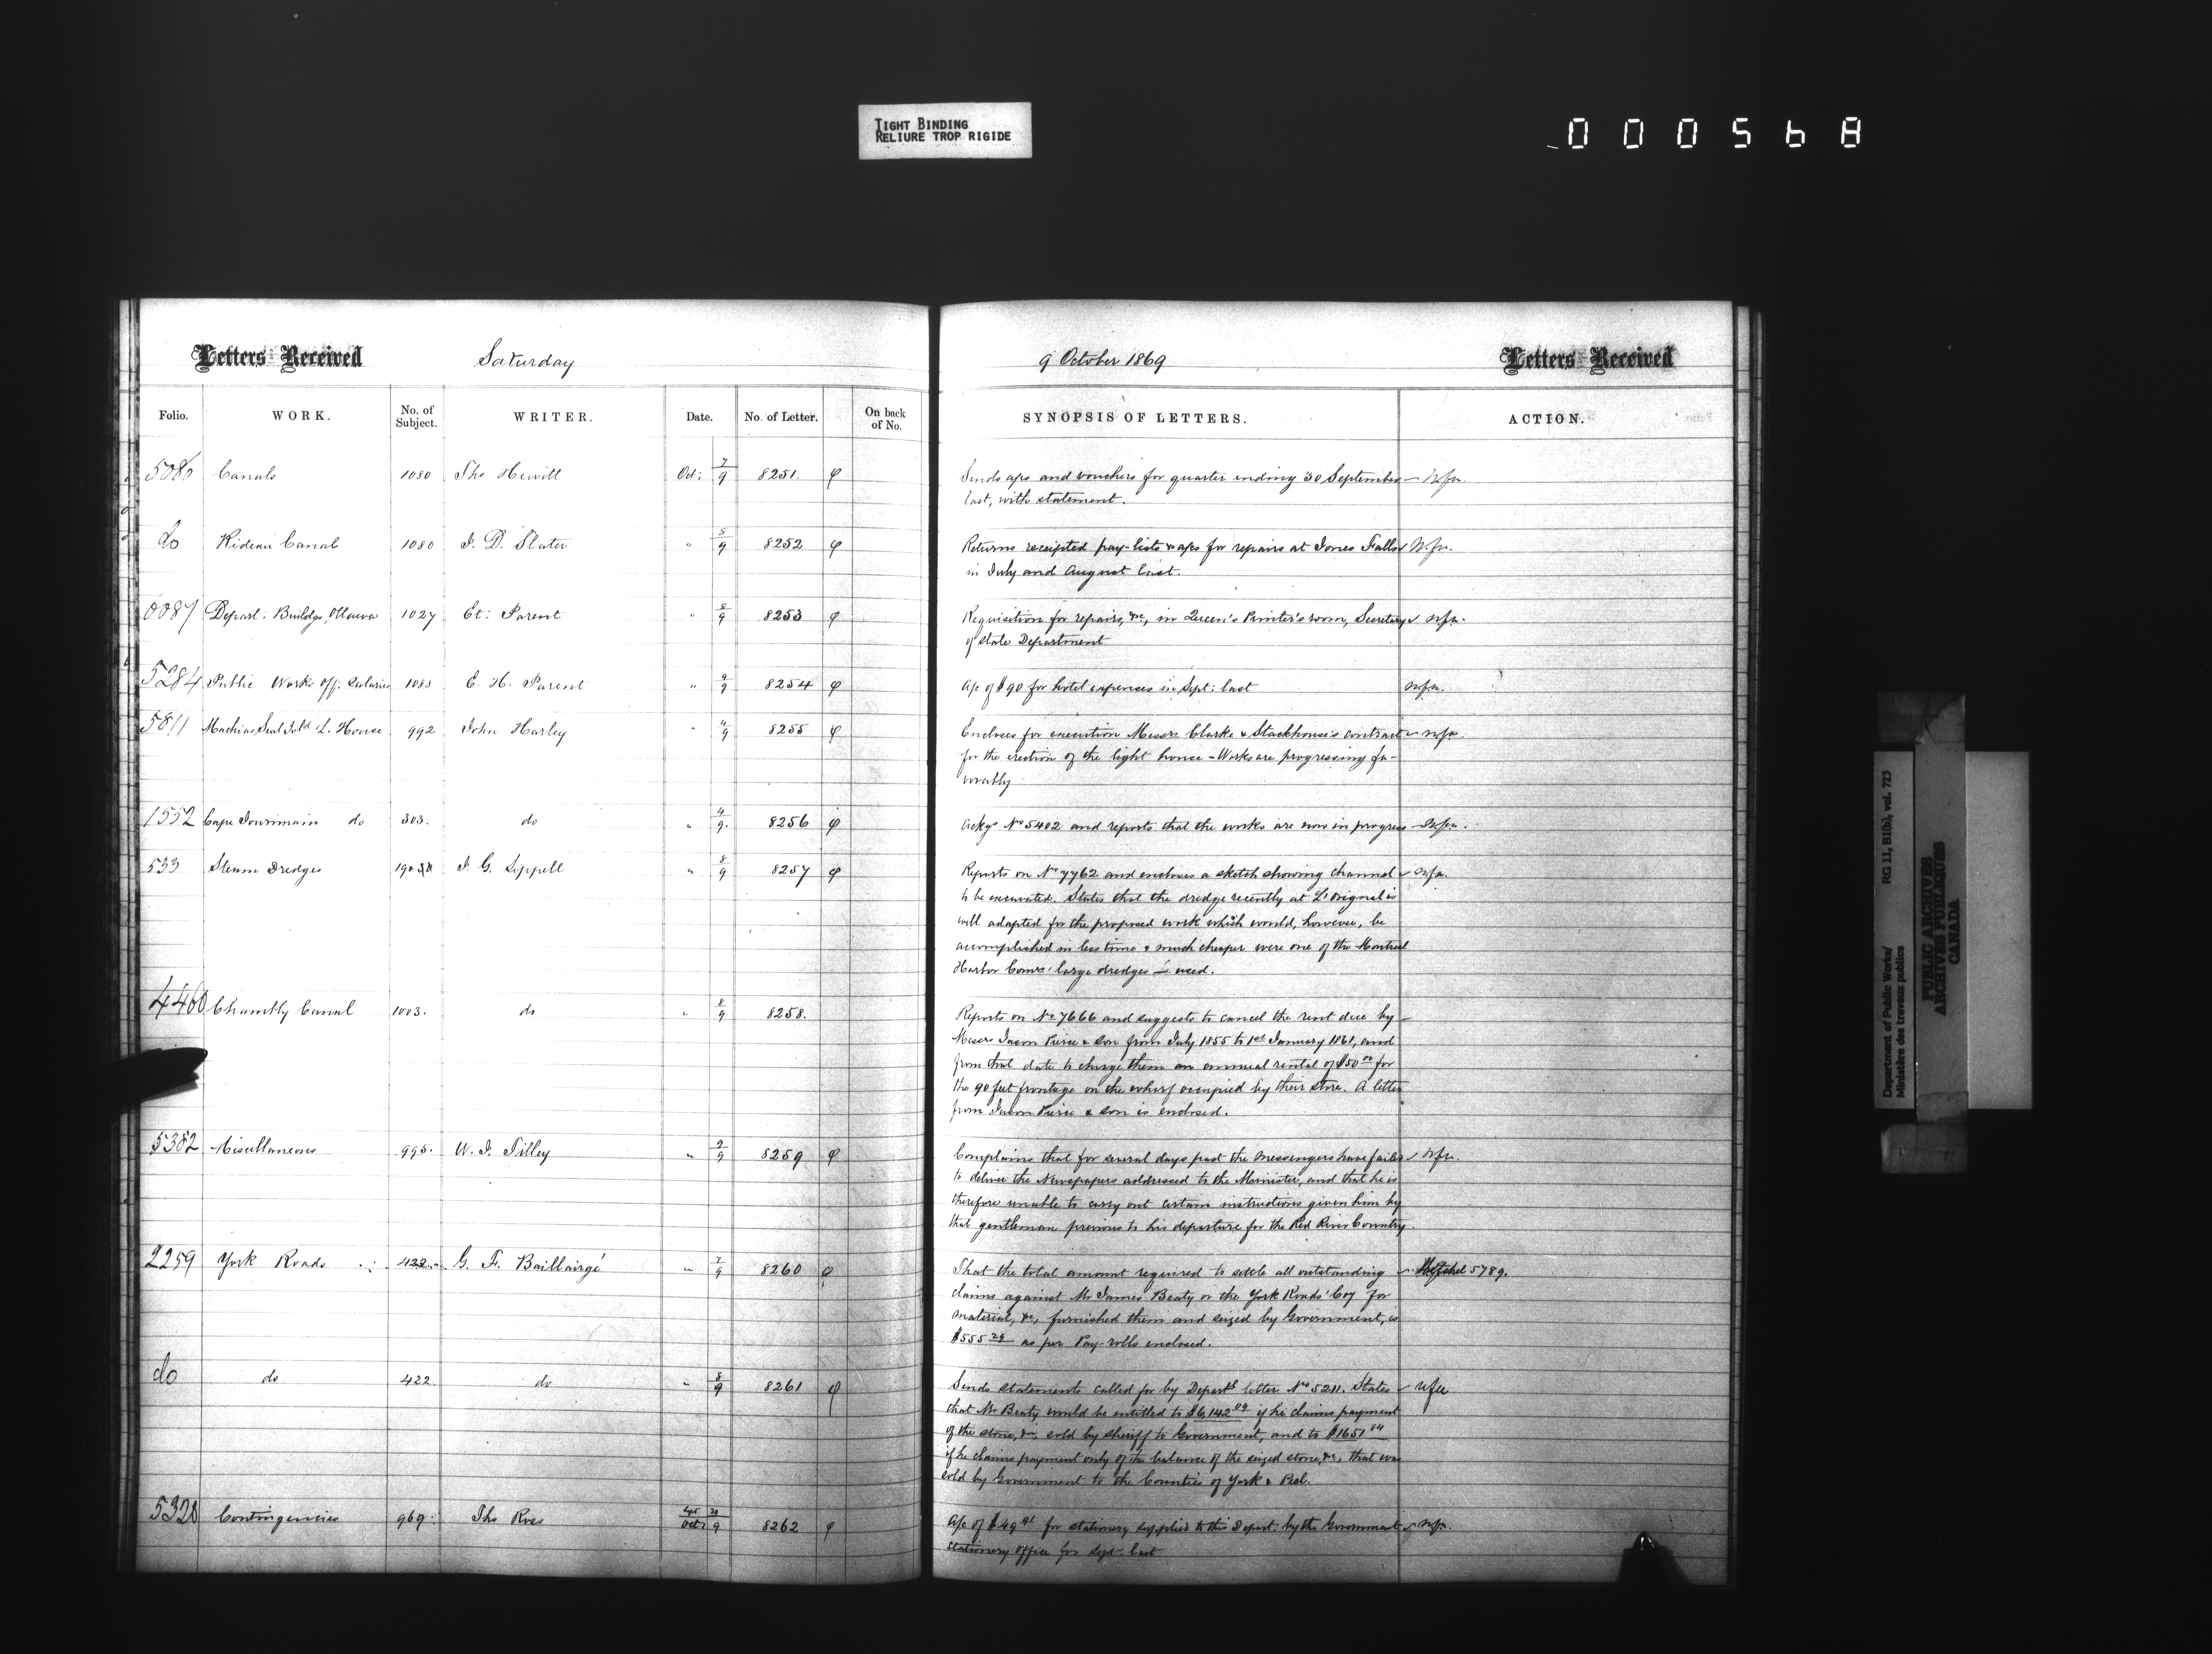 TIGHT BINDING
RELIURE TROP RIGIDE
000568
Letters Received Saturday
Folio. WORK. No. of Subject. WRITER. Date. No. of Letter. On back of No.
5080 Canals 1080 Thos Hewitt Oct: 7/9 8251. φ
do Rideau Canal 1080 J. D. Slater " 8/9 8252 φ
Depart: Buildgs, Ottawa 1027 Et: Parent " 8/9 8253 φ
5284 Public Works Off: Salaries 1088 E. H. Parent " 9/9 8254 φ
5811 Machias Seal Isld L. House 992 John Harley " 4/9 8255 φ
1552 Cape Jourimain do 303. do " 4/9. 8256 φ
533 Steam Dredges J. G. Sippell " 8/9 8257 φ
4460 Chambly Canal 1003. do " 8/9 8258.
5382 Miscellaneous 995. W. J. Tilley " 9/9 8259 φ
2259 York Roads 422 G. F. Baillairgé " 7/9 8260 φ
do do 422 do " 8/9 8261 φ
5328 Contingencies 969. Thos Ross Sept 30 Oct 9 8262 φ
9 October 1869 Letters Received
SYNOPSIS OF LETTERS. ACTION.
Sends a/cs and vouchers for quarter ending 30 September — N.f.a.
last, with statement.
Returns receipted pay-lists & a/cs for repairs at Jones Falls N.f.a.
in July and August last.
Requisition for repairs, &c, in Queen's Printer's room, Secretary N.f.a.
of State Department
A/c of $90 for hotel expenses in Sept: last N.f.a.
Encloses for execution Messrs Clarke & Stackhouse's contract N.f.a.
for the erection of the light house - Works are progressing fa-
vorably
Ackgs No 5402 and reports that the works are now in progress N.f.a.
Reports on No 7762 and encloses a sketch showing channel N.f.a.
to be excavated. States that the dredge recently at L'Orignal is
well adapted for the proposed work which would, however, be
accomplished in less time & much cheaper were one of the Montreal
Harbor Comrs' large dredges used.
Reports on No 7666 and suggests to cancel the rent due by
Messrs Jason Pierce & Son from July 1855 to 1st January 1861, and
from that date to charge them an annual rental of $50 00 for
the 90 feet frontage on the wharf occupied by their store. A letter
from Jason Pierce & Son is enclosed.
Complains that for several days past the messengers have failed N.f.a.
to deliver the Newspapers addressed to the Minister, and that he is
therefore unable to carry out certain instructions given him by
that gentleman previous to his departure for the Red River Country.
That the total amount required to settle all outstanding 5789.
claims against Mr James Beaty or the York Roads' Coy for
material, &c, furnished them and seized by Government, is
$555 29 as per Pay-rolls enclosed.
Sends statements called for by Departs letter No 5211. States N.f.a.
that Mr Beaty would be entitled to $6,142 09 if he claims payment
of the stone, &c, sold by Sheriff to Government, and to $1651 84
if he claims payment only of the balance of the seized stone, &c, that was
sold by Government to the Counties of York & Peel.
A/c of $49 for stationery supplied to this Depart: by the Government N.f.a.
Stationery Office for Sept: last
Department of Public Works/ RG 11, B1(b), vol. 723
Ministère des travaux publics
PUBLIC ARCHIVES
ARCHIVES PUBLIQUES
CANADA